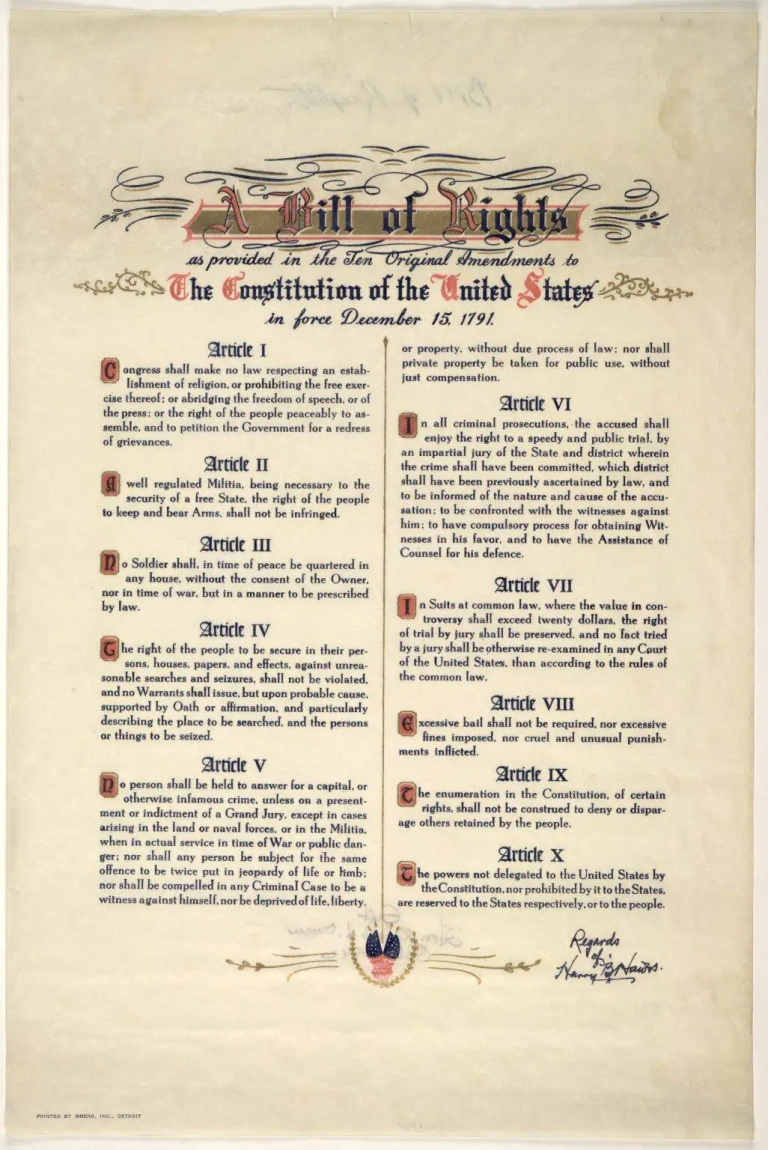 A Bill of Rights
as provided in the Ten Original Amendments to
The Constitution of the United States
in force December 15, 1791.
Article I
Congress shall make no law respecting an estab-
lishment of religion, or prohibiting the free exer-
cise thereof; or abridging the freedom of speech, or of
the press; or the right of the people peaceably to as-
semble, and to petition the Government for a redress
of grievances.
Article II
A well regulated Militia, being necessary to the
security of a free State, the right of the people
to keep and bear Arms, shall not be infringed.
Article III
No Soldier shall, in time of peace be quartered in
any house, without the consent of the Owner,
nor in time of war, but in a manner to be prescribed
by law.
Article IV
The right of the people to be secure in their per-
sons, houses, papers, and effects, against unrea-
sonable searches and seizures, shall not be violated,
and no Warrants shall issue, but upon probable cause,
supported by Oath or affirmation, and particularly
describing the place to be searched, and the persons
or things to be seized.
Article V
No person shall be held to answer for a capital, or
otherwise infamous crime, unless on a present-
ment or indictment of a Grand Jury, except in cases
arising in the land or naval forces, or in the Militia,
when in actual service in time of War or public dan-
ger; nor shall any person be subject for the same
offence to be twice put in jeopardy of life or limb;
nor shall be compelled in any Criminal Case to be a
witness against himself, nor be deprived of life, liberty,
or property, without due process of law; nor shall
private property be taken for public use, without
just compensation.
Article VI
In all criminal prosecutions, the accused shall
enjoy the right to a speedy and public trial, by
an impartial jury of the State and district wherein
the crime shall have been committed, which district
shall have been previously ascertained by law, and
to be informed of the nature and cause of the accu-
sation; to be confronted with the witnesses against
him; to have compulsory process for obtaining Wit-
nesses in his favor, and to have the Assistance of
Counsel for his defence.
Article VII
In Suits at common law, where the value in con-
troversy shall exceed twenty dollars, the right
of trial by jury shall be preserved, and no fact tried
by a jury shall be otherwise re-examined in any Court
of the United States, than according to the rules of
the common law.
Article VIII
Excessive bail shall not be required, nor excessive
fines imposed, nor cruel and unusual punish-
ments inflicted.
Article IX
The enumeration in the Constitution, of certain
rights, shall not be construed to deny or dispar-
age others retained by the people.
Article X
The powers not delegated to the United States by
the Constitution, nor prohibited by it to the States,
are reserved to the States respectively, or to the people.
Regards
of
Harry B. Hawes.
PRINTED BY
INC., DETROIT